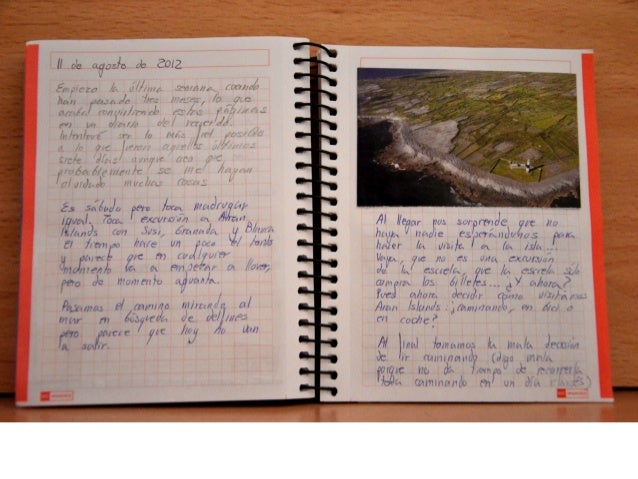 11 de agosto de 2012
Empiezo la última semana cuando
han pasado tres meses, lo que
acaba convirtiendo estas páginas
en un diario del recuerdo.
Intentaré ser lo más fiel posible
a lo que fueron aquellos últimos
siete días aunque creo que
probablemente se me hayan
olvidado muchas cosas
Es sábado pero toca madrugar
igual. Toca excursión a Aran
Islands con Susi, Granada y
El tiempo hace un poco el tonto
y parece que en cualquier
momento va a empezar a llover,
pero de momento aguanta.
Pasamos el camino mirando al
mar en búsqueda de delfines
pero parece que hoy no van
a salir.
Al llegar nos sorprende que no
haya nadie esperándonos para
hacer la visita a la isla...
Vaya, que no es una excursión
de la escuela, que la escuela sólo
compra los billetes... ¿Y ahora?
Pues ahora decidir cómo visitamos
Aran Islands: ¿caminando, en bici o
en coche?
Al final tomamos la mala decisión
de ir caminando (digo mala
porque no da tiempo de recorrerla
toda caminando en un día